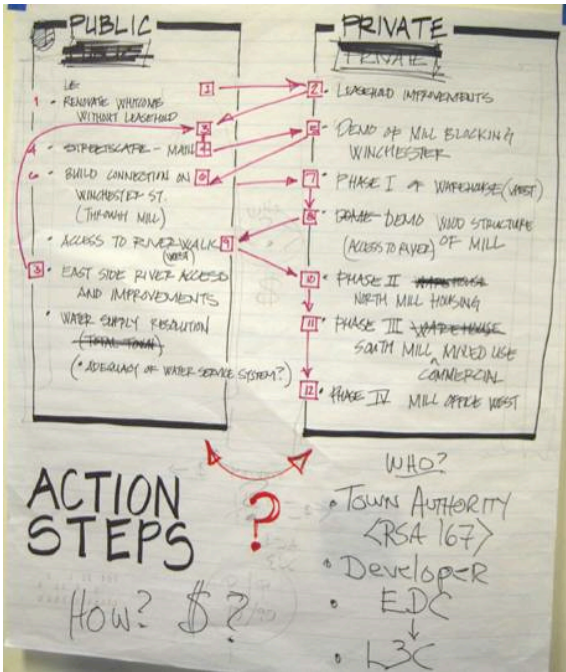 PUBLIC
PUBLIC
LE
1
1 - RENOVATE WHITCOMB
WITHOUT LEASEHOLD
3
4 - STREETSCAPE - MAIN 4
6 - BUILD CONNECTION ON 6
WINCHESTER ST.
(THROUGH MILL)
• ACCESS TO RIVER WALK 9
(WEST)
3 • EAST SIDE RIVER ACCESS
AND IMPROVEMENTS
• WATER SUPPLY RESOLUTION
(TOTAL TOWN)
(• ADEQUACY OF WATER SERVICE SYSTEM?)
PRIVATE
PRIVATE
2 • LEASEHOLD IMPROVEMENTS
5 • DEMO OF MILL BLOCKING
WINCHESTER
7 • PHASE I OF WAREHOUSE (WEST)
8 • DOME DEMO WOOD STRUCTURE
(ACCESS TO RIVER) OF MILL
10 • PHASE II WAREHOUSE
NORTH MILL HOUSING
11 • PHASE III WAREHOUSE
SOUTH MILL, MIXED USE
COMMERCIAL
12 • PHASE IV MILL OFFICE WEST
ACTION
STEPS
?
HOW? $?
WHO?
• TOWN AUTHORITY
<RSA 167>
• Developer
• EDC
• L3C